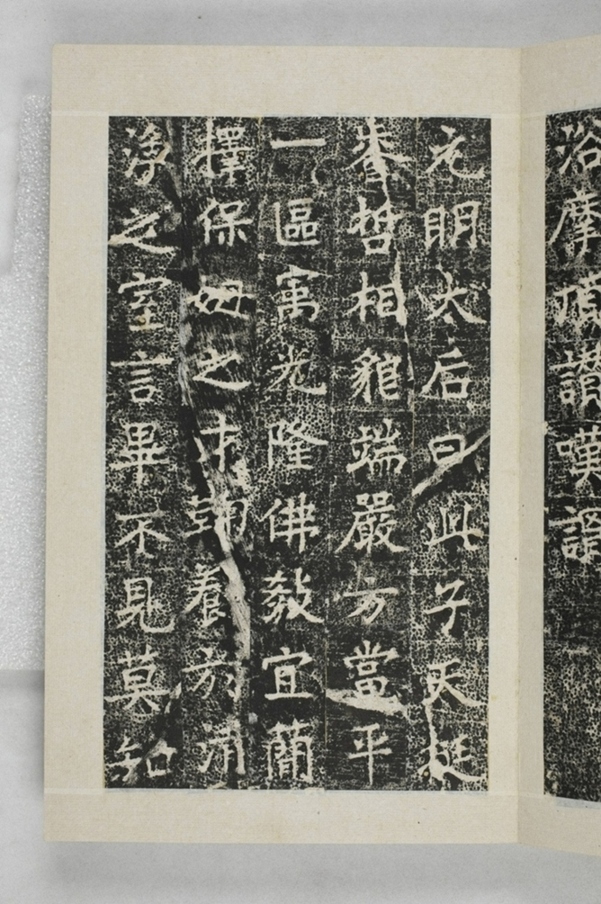 浴摩頂讃嘆謂
元明太后曰此子天挺
睿哲相貌端嚴方當平
一區寓光隆佛教宜蕳
擇保姆之才鞠養於清
淨之室言畢不見莫知